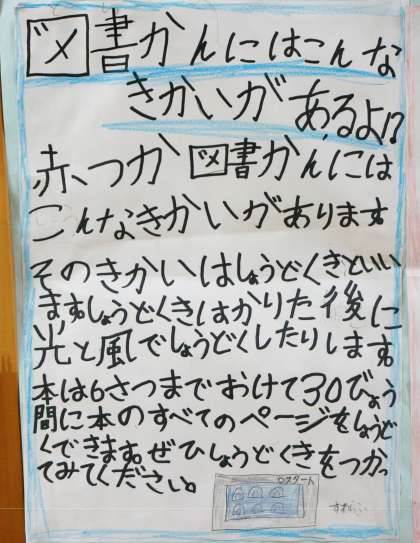 図書かんにはこんな
きかいがあるよ!?
赤つか図書かんには
こんなきかいがあります
そのきかいはしょうどくきといい
ます。しょうどくきはかりた後に
光と風でしょうどくしたりします。
本は6さつまでおけて30びょう
間に本のすべてのページをしょうど
くできます。ぜひしょうどくきをつかっ
てみてください。
スタート